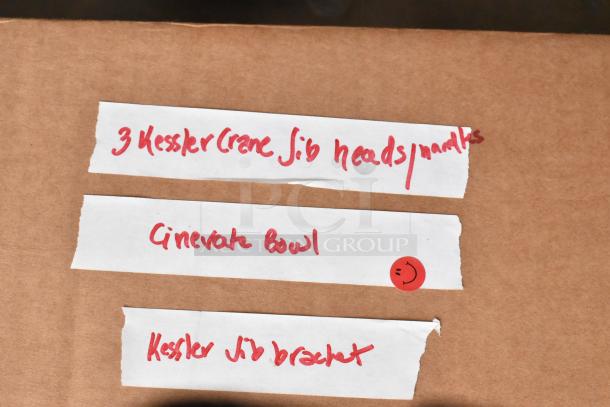 3 Kessler Crane Jib heads/handles
Cinevate Bowl
PCI
GROUP
Kessler Jib bracket